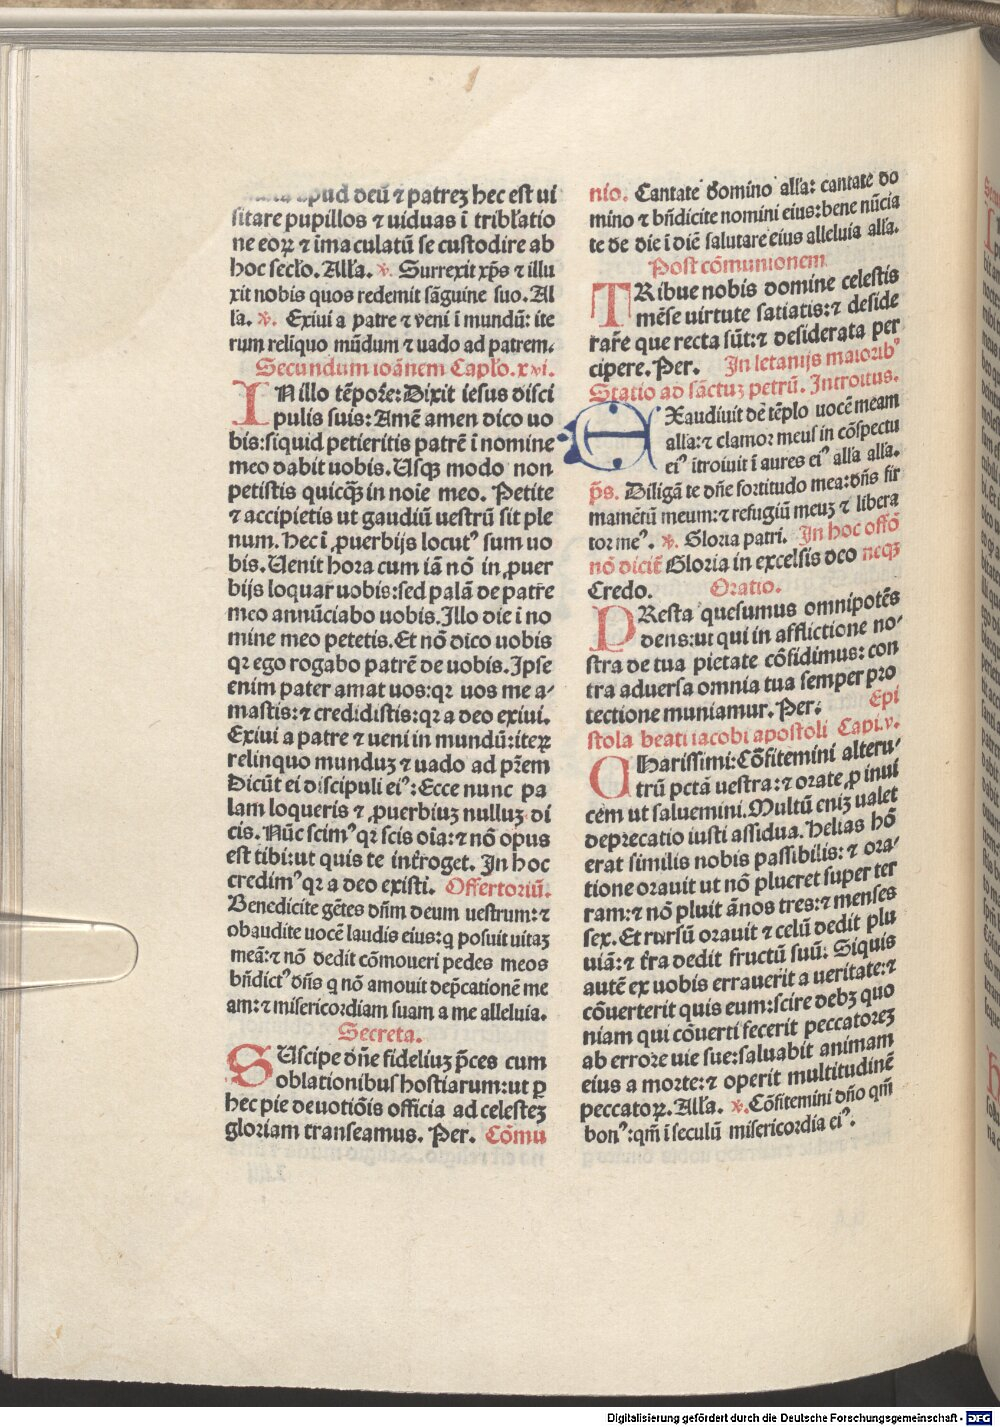 apud deū ⁊ patreꝫ hec est ui
sitare pupillos ⁊ uiduas ī tribl'atio
ne eoꝝ ⁊ īmaculatū se custodire ab
hoc secl'o. All'a. ℣. Surrexit xp̄s ⁊ illu
xit nobis quos redemit sāguine suo. Al
l'a. ℣. Exiui a patre ⁊ veni ī mundū: ite
rum relīquo mūdum ⁊ uado ad patrem.
Secundum ioānem Capl'o. xvi.
IN illo tēpore: Dixit iesus disci
pulis suis: Amē amen dico uo
bis: siquid petieritis patrē ī nomine
meo dabit uobis. Usqꝫ modo non
petistis quicqꝫ in noie meo. Petite
⁊ accipietis ut gaudiū uestrū sit ple
num. Hec ī ꝓuerbijs locutꝰ sum uo
bis. Uenit hora cum iā nō in ꝓuer
bijs loquar uobis: sed palā de patre
meo annūciabo uobis. Illo die ī no
mine meo petetis. Et nō dico uobis
qꝛ ego rogabo patrē de uobis. Ipse
enim pater amat uos: qꝛ uos me a-
mastis: ⁊ credidistis: qꝛ a deo exiui.
Exiui a patre ⁊ ueni in mundū: iteꝝ
relinquo munduꝫ ⁊ uado ad pr̄em
Dicūt ei discipuli eiꝰ: Ecce nunc pa
lam loqueris ⁊ ꝓuerbiuꝫ nulluꝫ di
cis. Nūc scimꝰ qꝛ scis oīa: ⁊ nō opus
est tibi: ut quis te int̄roget. In hoc
credimꝰ qꝛ a deo existi. Offertoriū.
Benedicite gētes dn̄m deum uestrum: ⁊
obaudite uocē laudis eius: q posuit uitaꝫ
meā: ⁊ nō dedit cōmoueri pedes meos
bn̄dictꝰ dn̄s q nō amouit dep̄cationē me
am: ⁊ misericordiam suam a me alleluia.
Secreta.
SUscipe dn̄e fideliuꝫ p̄ces cum
oblationibus hostiarum: ut ꝑ
hec pie deuotiōis officia ad celesteꝫ
gloriam transeamus. Per. Cōmu
nio. Cantate domino all'a: cantate do
mino ⁊ bn̄dicite nomini eius: bene nūcia
te de die ī diē salutare eius alleluia all'a.
Post cōmunionem
TRibue nobis domine celestis
mēse uirtute satiatis: ⁊ deside
rare que recta sūt: ⁊ desiderata per
cipere. Per. In letanijs maioribꝰ
Statio ad sāctuꝫ petrū. Introitus.
EXaudiuit de tēplo uocē meam
all'a: ⁊ clamor meus in cōspectu
eiꝰ ītroiuit ī aures eiꝰ all'a all'a.
p̄s. Diligā te dn̄e fortitudo mea: dn̄s fir
mamētū meum: ⁊ refugiū meuꝫ ⁊ libera
tor meꝰ. ℣. Gloria patri. In hoc offō
nō dicit̄ Gloria in excelsis deo neqꝫ
Credo. Oratio.
PResta quesumus omnipotēs
deus: ut qui in afflictione no-
stra de tua pietate cōfidimus: con
tra aduersa omnia tua semper pro
tectione muniamur. Per. Epi
stola beati iacobi apostoli Capi. v.
CHarissimi: Cōfitemini alteru-
trū pctā uestra: ⁊ orate ꝓ inui
cem ut saluemini. Multū eniꝫ ualet
deprecatio iusti assidua. Helias hō
erat similis nobis passibilis: ⁊ ora-
tione orauit ut nō plueret super ter
ram: ⁊ nō pluit ānos tres: ⁊ menses
sex. Et rursū orauit ⁊ celū dedit plu
uiā: ⁊ t̄ra dedit fructū suū. Siquis
autē ex uobis errauerit a ueritate: ⁊
cōuerterit quis eum: scire debꝫ quo
niam qui cōuerti fecerit peccatoreꝫ
ab errore uie sue: saluabit animam
eius a morte: ⁊ operit multitudinē
peccatoꝝ. All'a. ℣. Cōfitemini dn̄o qm̄
bonꝰ: qm̄ ī seculū misericordia eiꝰ.
Digitalisierung gefördert durch die Deutsche Forschungsgemeinschaft - DFG